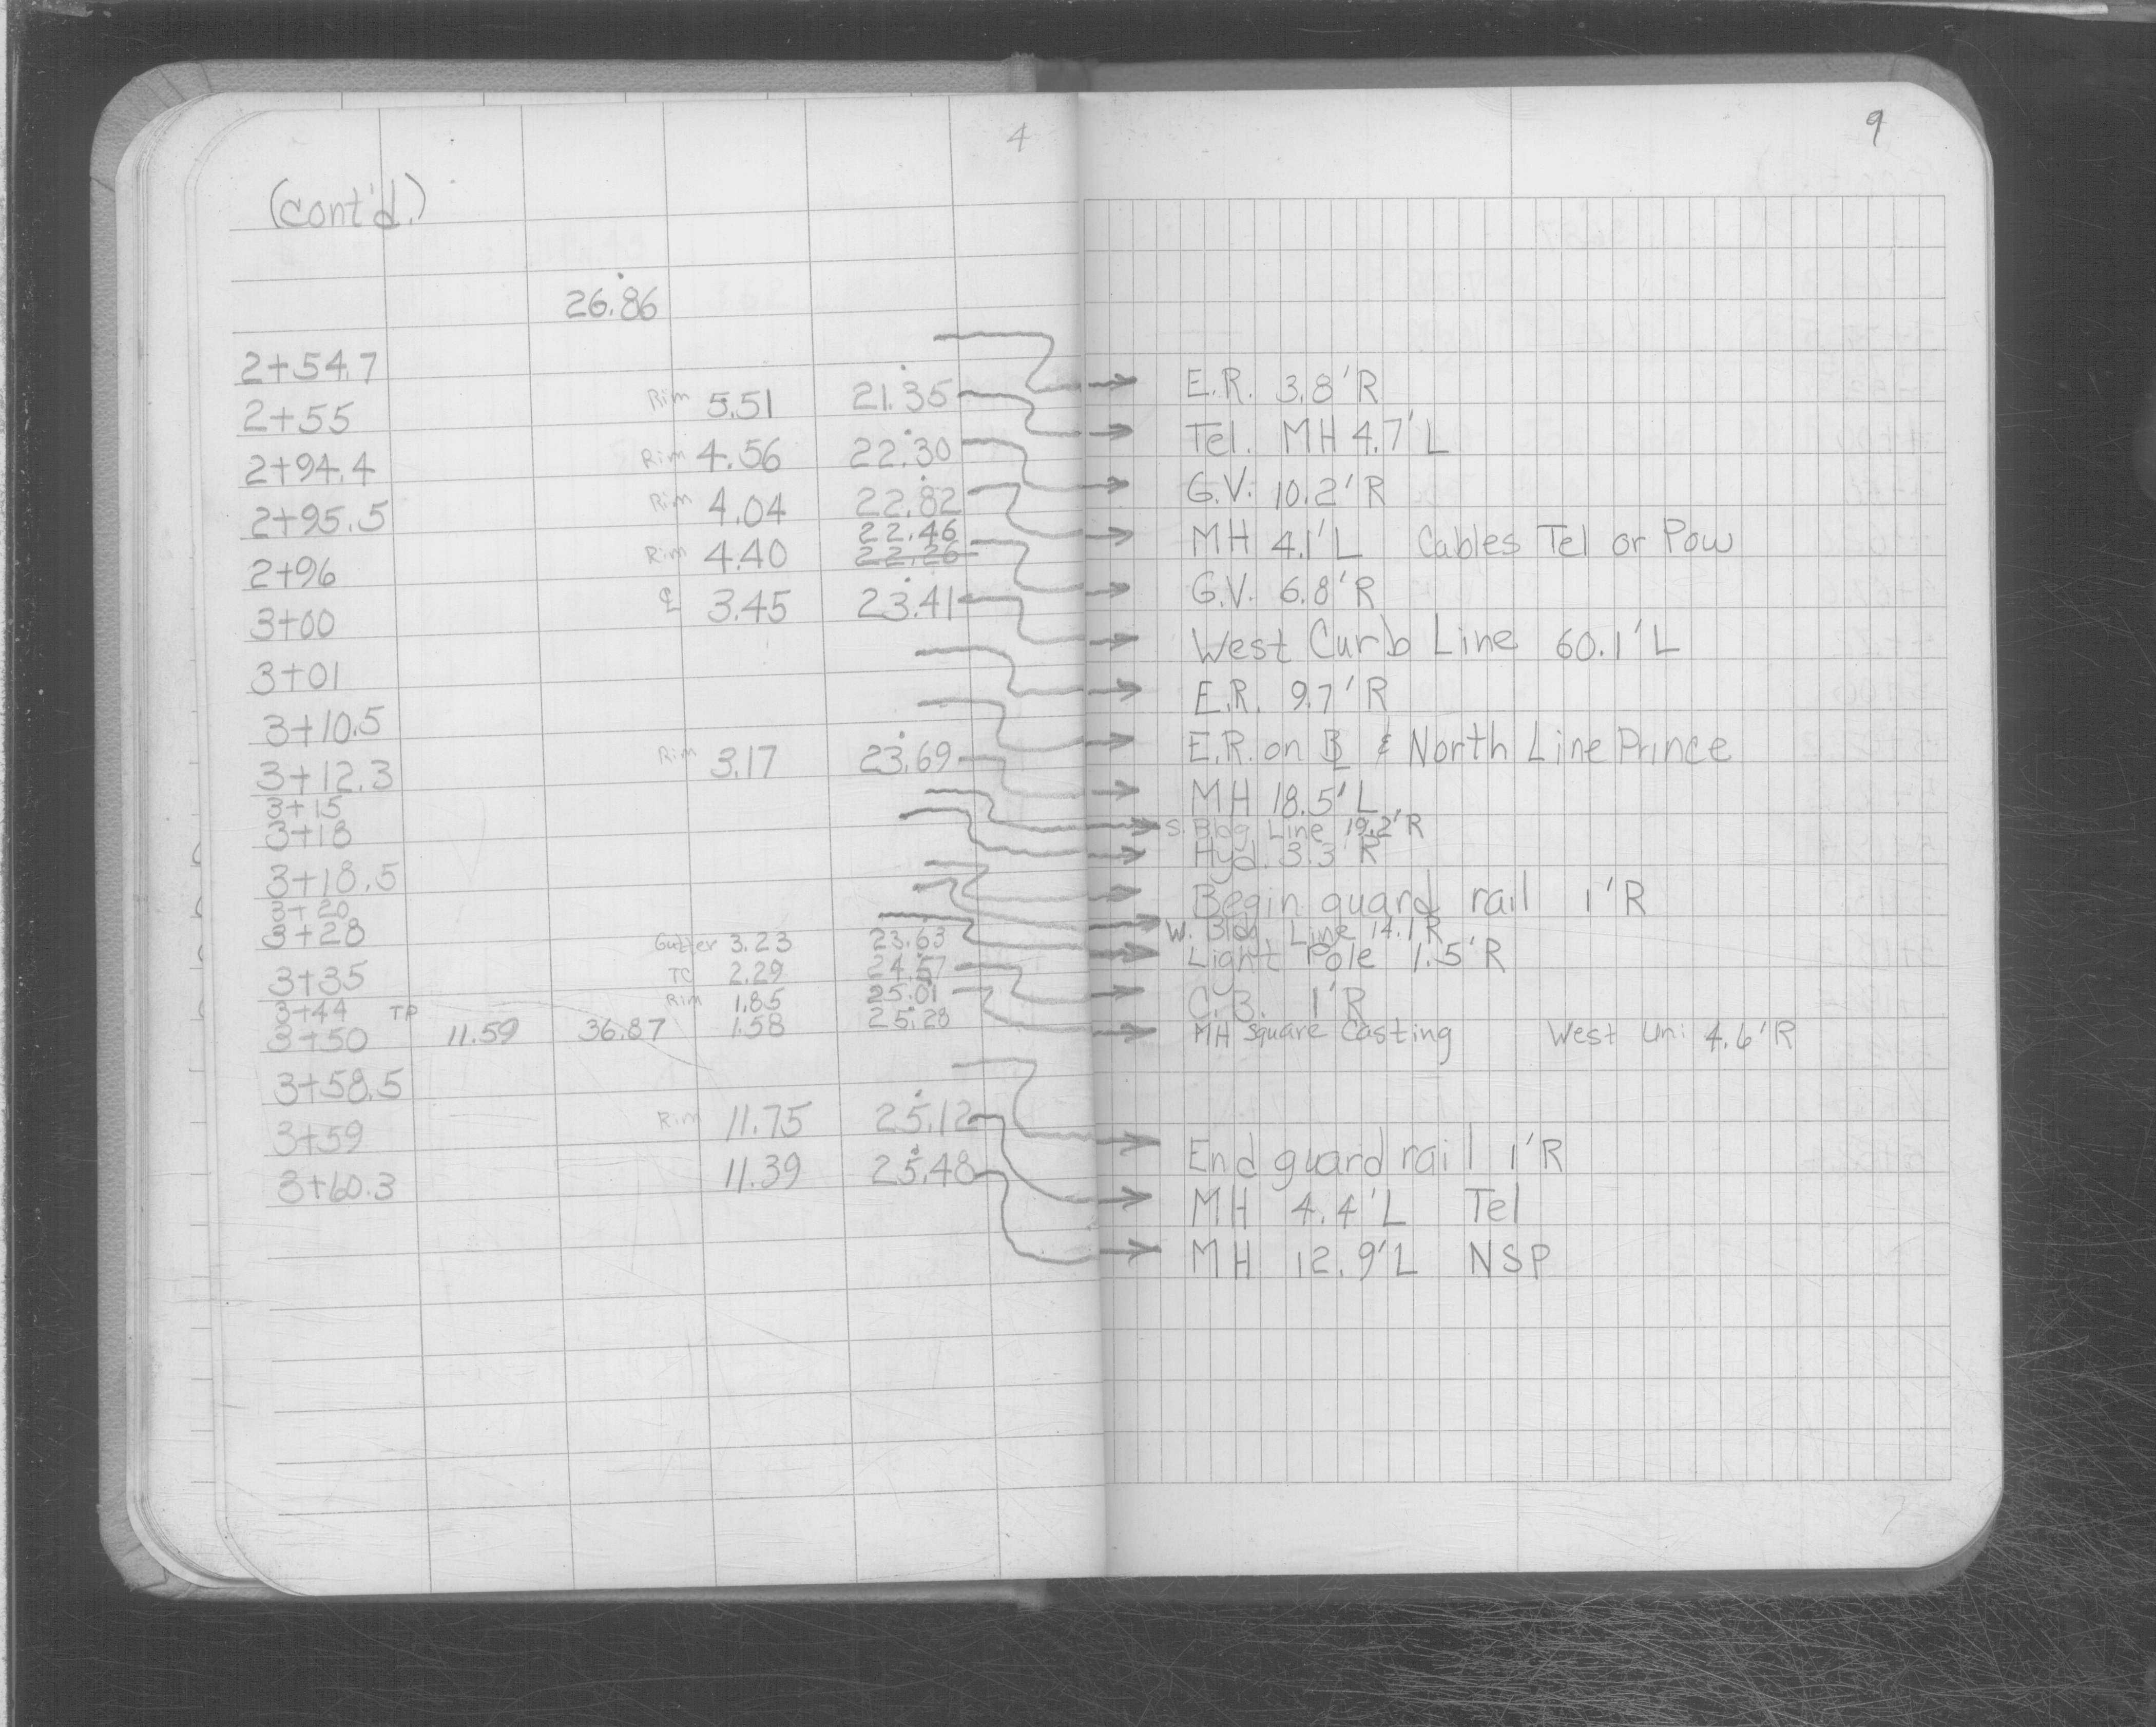 4
(cont'd.)
26.86
2+54.7
2+55 Rim 5.51 21.35
2+94.4 Rim 4.56 22.30
2+95.5 Rim 4.04 22.82
22.46
2+96 Rim 4.40 22.26
3+00 ℄ 3.45 23.41
3+01
3+10.5
3+12.3 Rim 3.17 23.69
3+15
3+18
3+18.5
3+20
3+28
Gutter 3.23 23.63
3+35 TC 2.29 24.57
3+44 TP Rim 1.85 25.01
3+50 11.59 36.87 1.58 25.28
3+58.5
3+59 Rim 11.75 25.12
3+60.3 11.39 25.48
9
E.R. 3.8'R
Tel. MH 4.7'L
G.V. 10.2'R
MH 4.1'L Cables Tel or Pow
G.V. 6.8'R
West Curb Line 60.1'L
E.R. 9.7'R
E.R. on BL & North Line Prince
MH 18.5'L
S. Bldg Line 19.2'R
Hyd. 3.3'R
Begin guard rail 1'R
W. Bldg. Line 14.1'R
Light Pole 1.5'R
C.B. 1'R
MH Square Casting West Un: 4.6'R
End guard rail 1'R
MH 4.4'L Tel
MH 12.9'L NSP